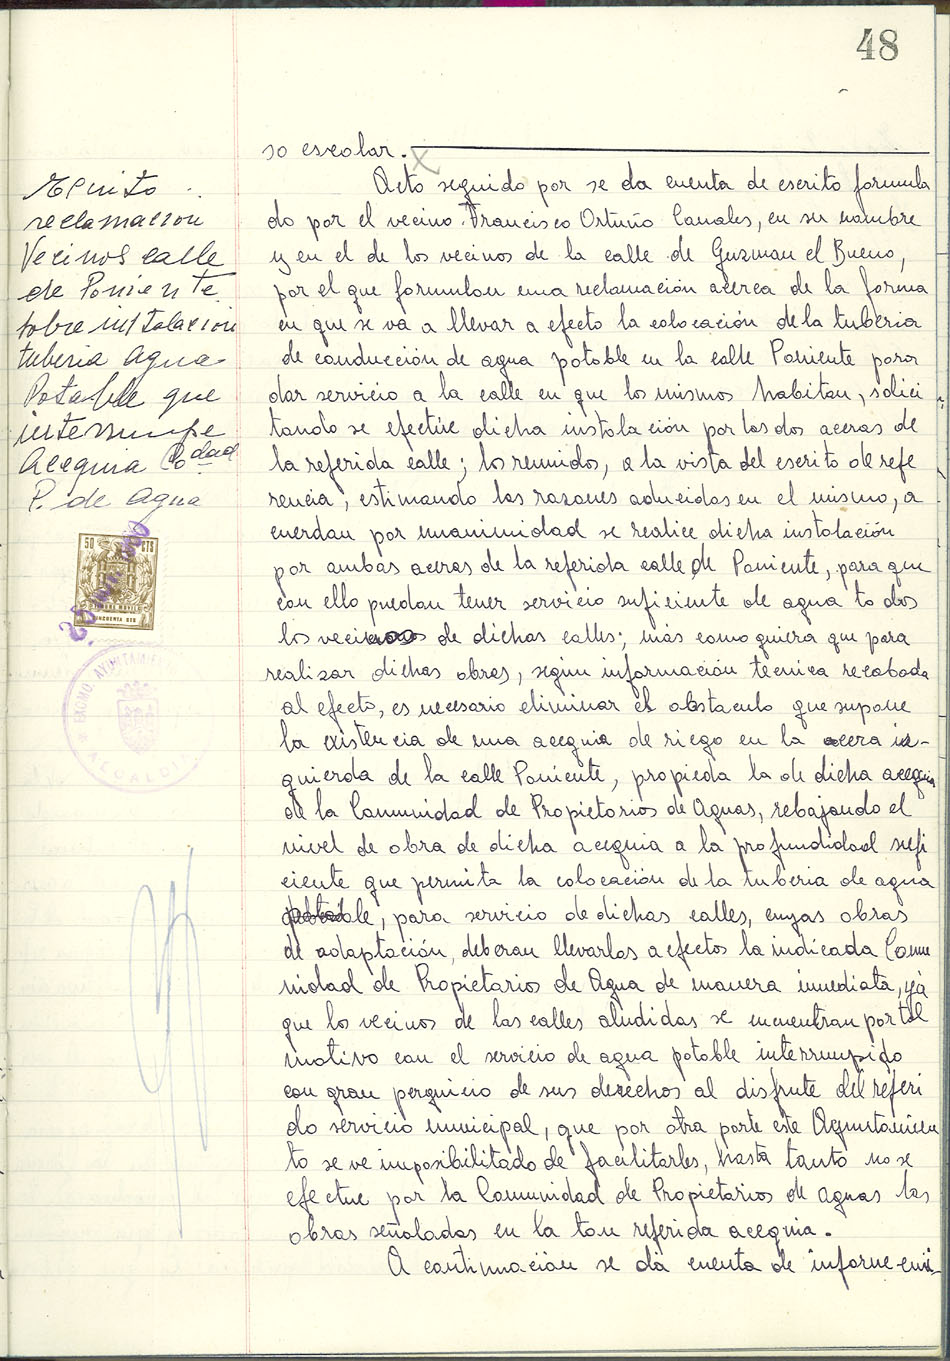 48
so escolar.
Acto seguido por se da cuenta de escrito formula
do por el vecino Francisco Ortuño Canales, en su nombre
y en el de los vecinos de la calle de Guzman el Bueno,
por el que formulan una reclamación acerca de la forma
en que se va a llevar a efecto la colocación de la tuberia
de conducción de agua potable en la calle Poniente para
dar servicio a la calle en que los mismos habitan, solici
tando se efectue dicha instalación por las dos aceras de
la referida calle; los reunidos, a la vista del escrito de refe
rencia, estimando las razones aducidas en el mismo, a
cuerdan por unanimidad se realice dicha instalación
por ambas aceras de la referida calle de Poniente, para que
con ello puedan tener servicio suficiente de agua todos
los vecinos de dichas calles; más como quiera que para
realizar dichas obras, según información tecnica recabada
al efecto, es necesario eliminar el obstaculo que supone
la existencia de una acequia de riego en la acera iz-
quierda de la calle Poniente, propieda la de dicha acequia
de la Comunidad de Propietarios de Aguas, rebajando el
nivel de obra de dicha acequia a la profundidad sufi
ciente que permita la colocación de la tuberia de agua
potable, para servicio de dichas calles, cuyas obras
de adaptación, deberan llevarlas a efectos la indicada Comu
nidad de Propietarios de Agua de manera inmediata, yá
que los vecinos de las calles aludidas se encuentran por tal
motivo con el servicio de agua potable interrumpido
con gran perguicio de sus derechos al disfrute del referi
do servicio municipal, que por otra parte este Ayuntamien
to se ve imposibilitado de facilitarles, hasta tanto no se
efectue por la Comunidad de Propietarios de aguas las
obras señaladas en la tan referida acequia.
A continuación se dá cuenta de informe emi-
Escrito
reclamacion
Vecinos calle
de Poniente
sobre instalacion
tuberia agua
Potable que
interrumpe
Acequia Codad
P. de Agua
50 CTS
TIMBRE MOVIL
CINCUENTA CTS
EXCMO. AYUNTAMIENTO
ALCALDIA